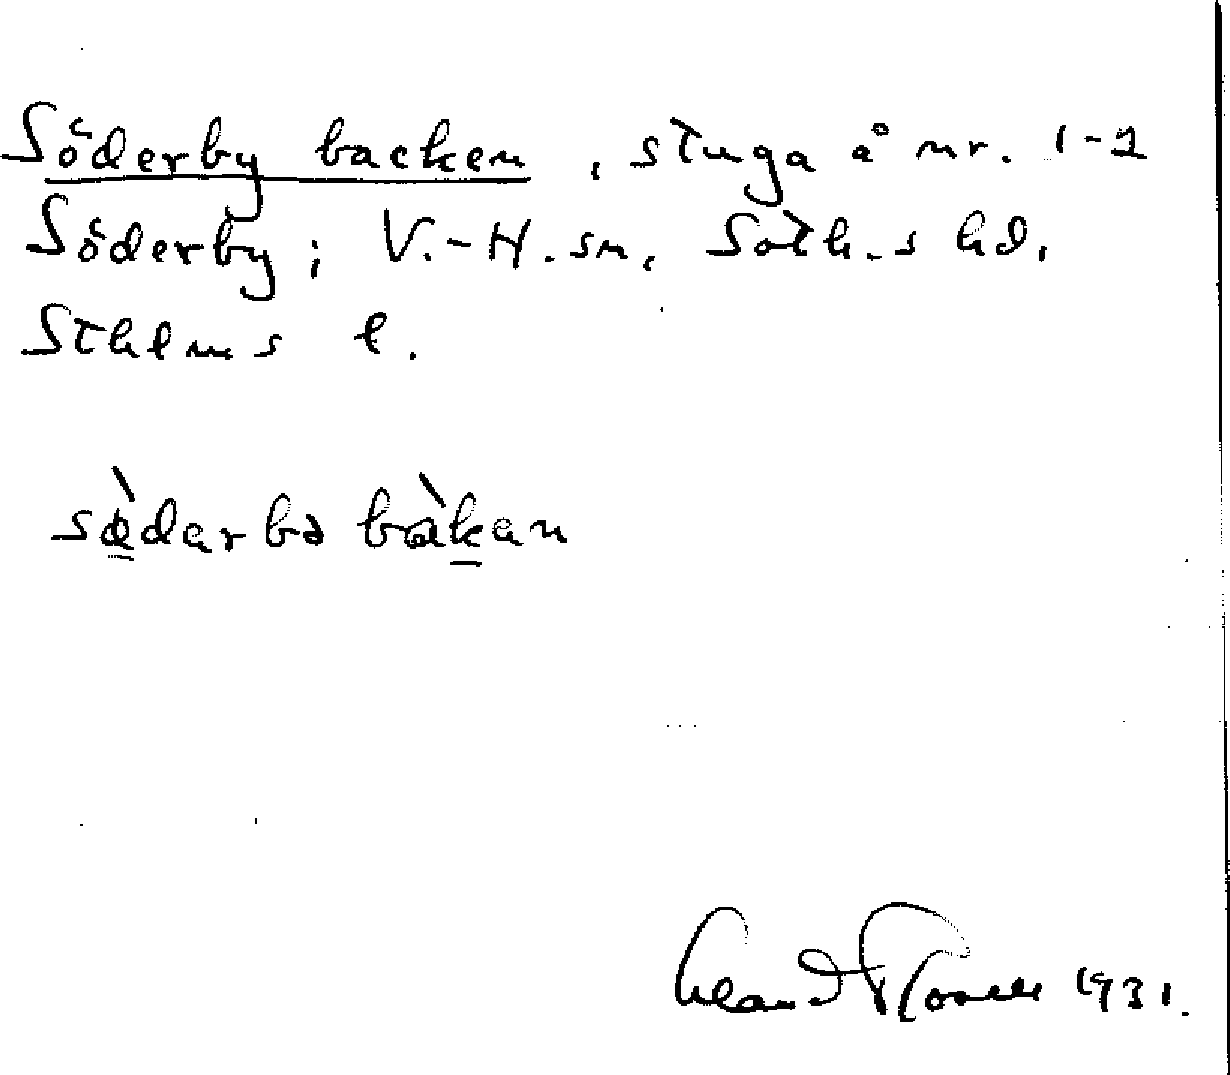 Söderby backen, stuga å nr. 1-2
Söderby; V.-H. sn, Soth.s hd,
Sthlms l.
sødarbə bakan
1931.